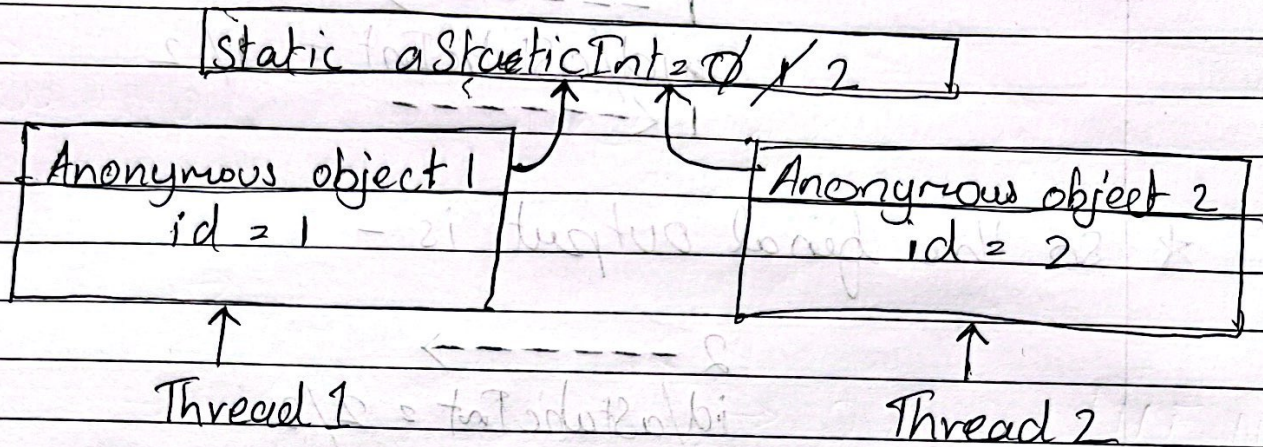 static aStaticInt = 0 1 2
Anonymous object 1
id = 1
Anonymous object 2
id = 2
Thread 1
Thread 2